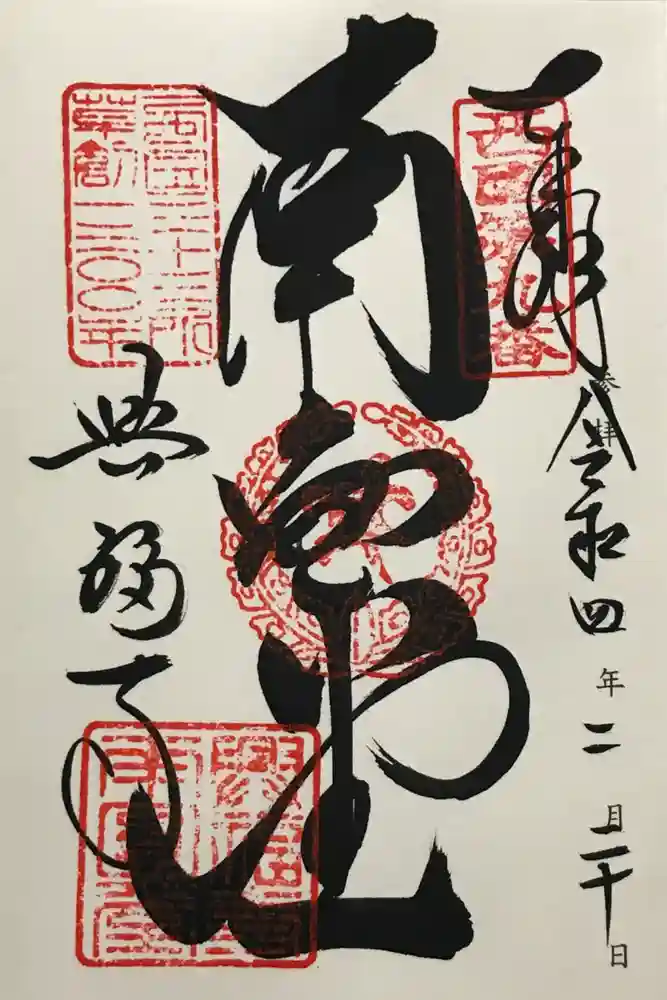 奉拝
令和四年二月二十日
西国第九番
南円堂
興福寺
西国三十三所
草創一三〇〇年
興福寺
南円堂